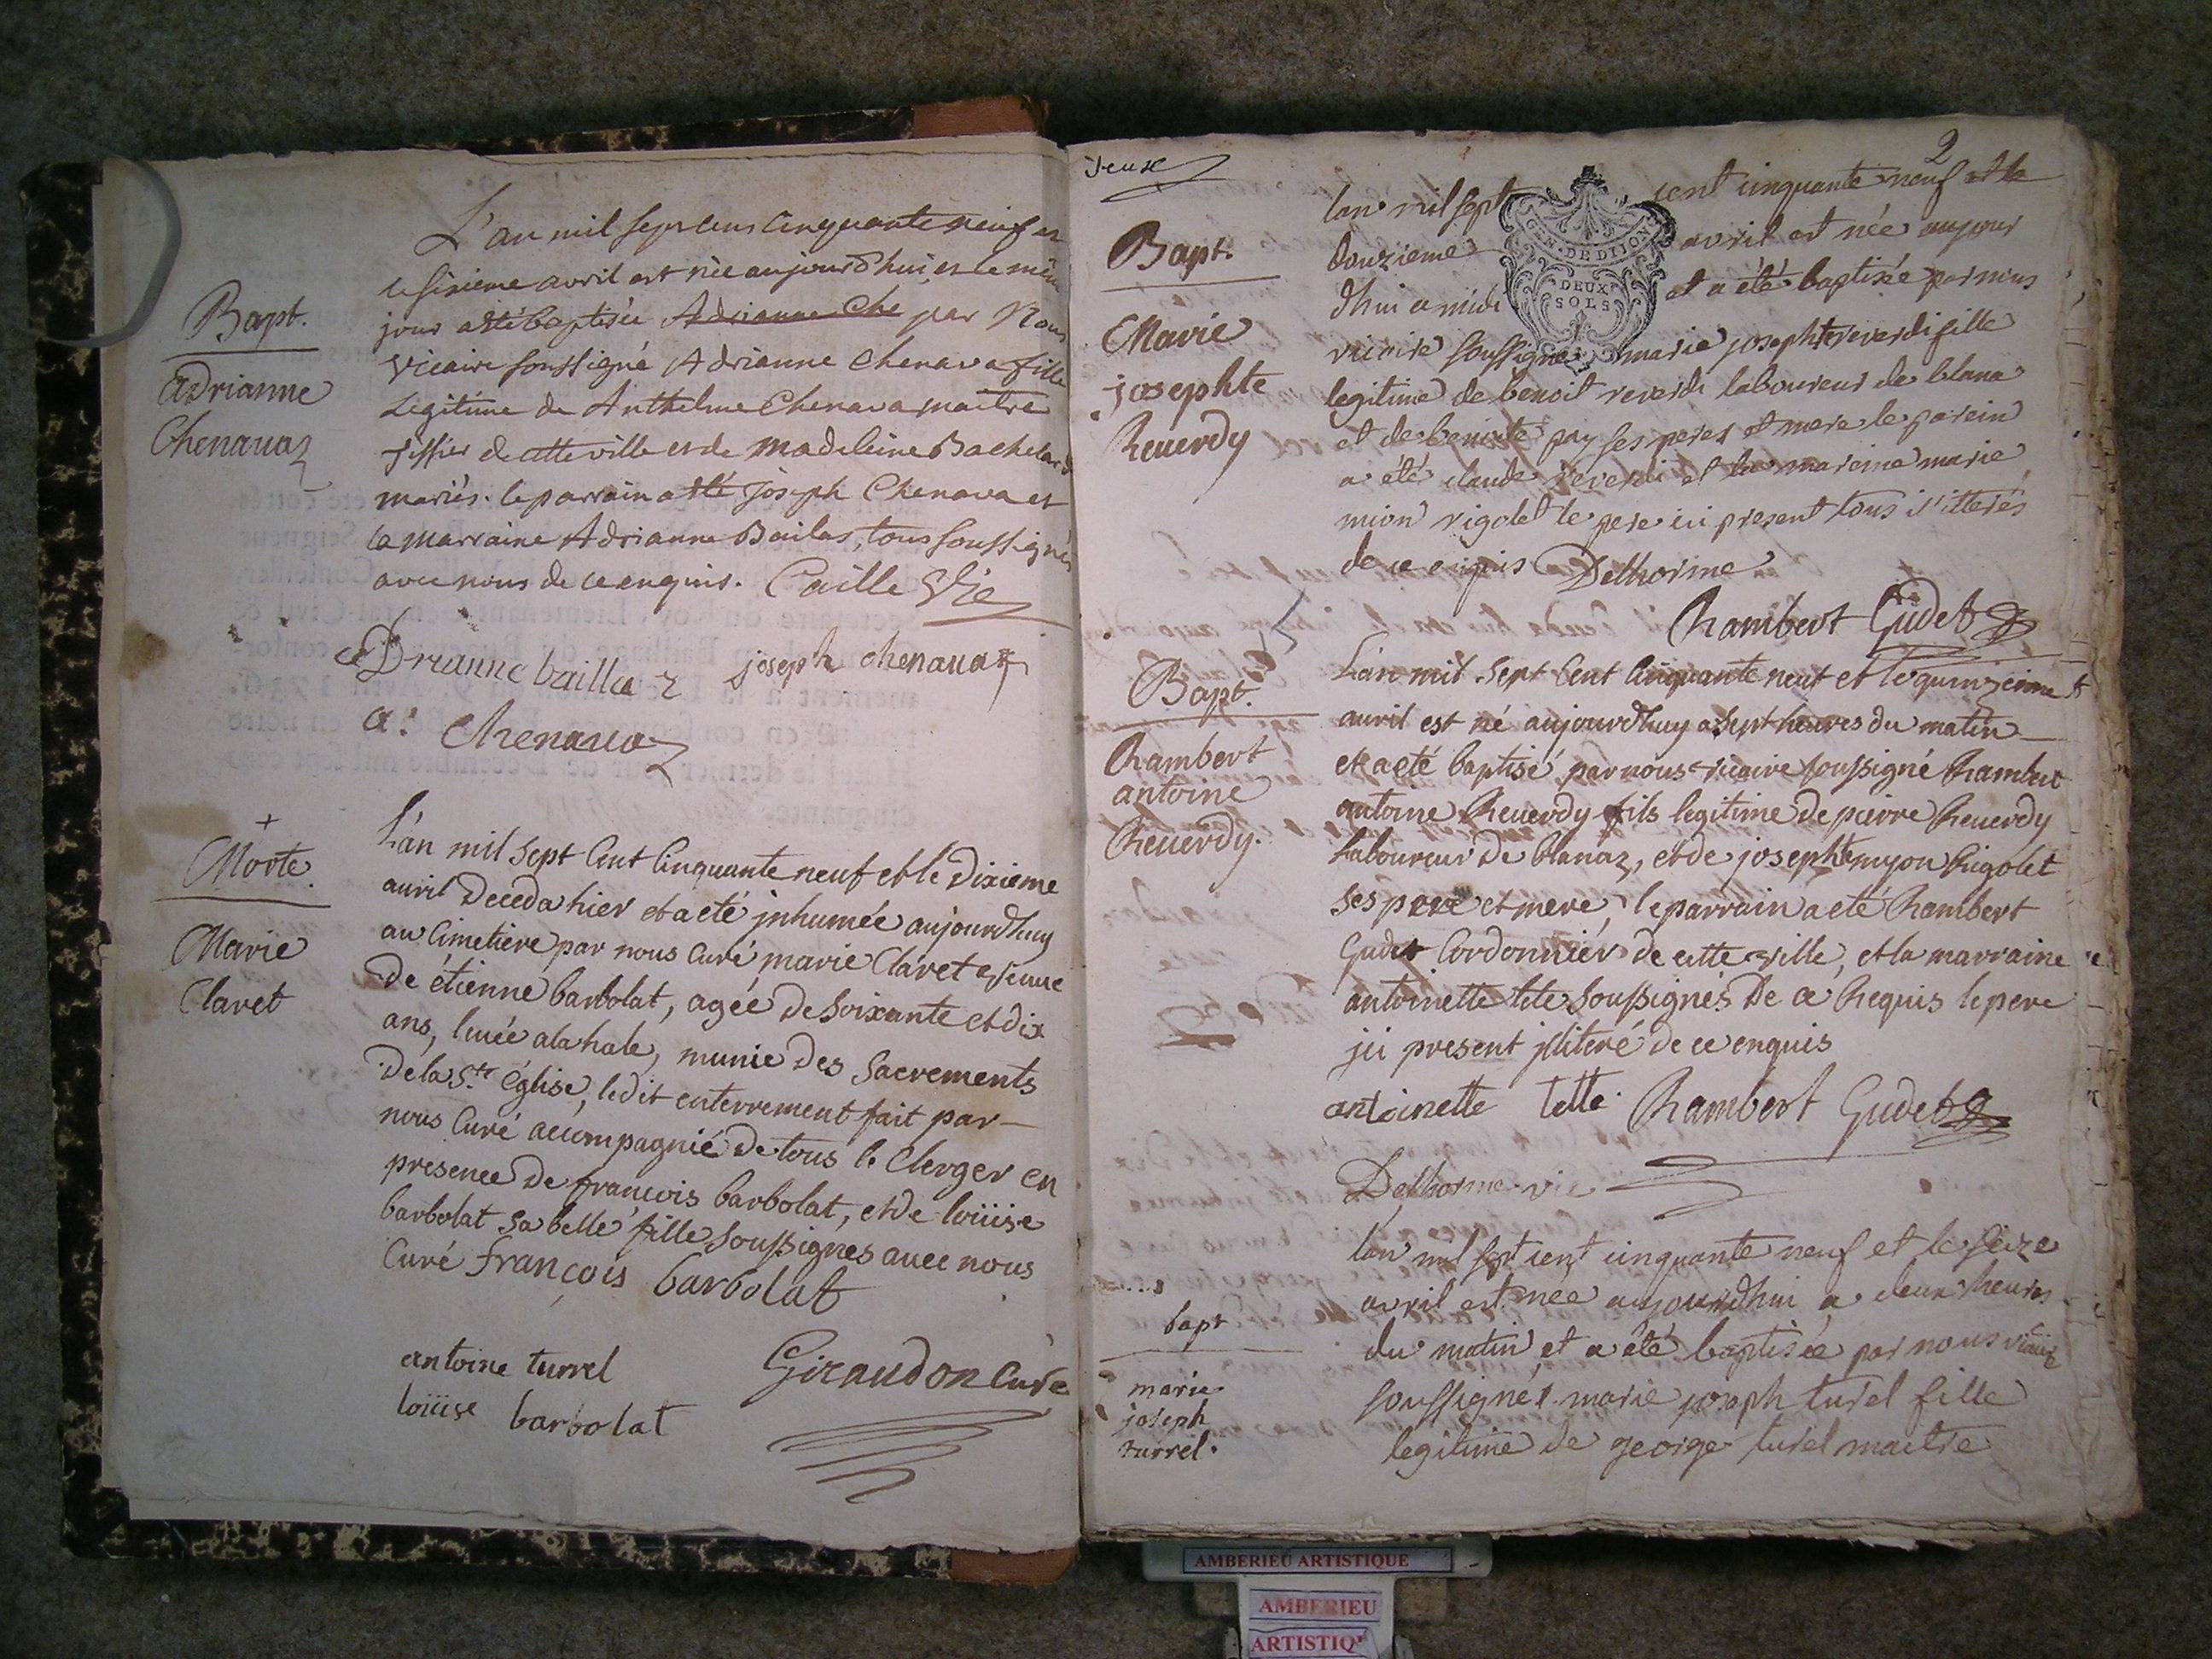 Bapt.
Adrianne
Chenavaz
L'an mil sept cens cinquante neuf et
le sixieme avril est née aujourd'hui et le même
jour a été baptisée Adrianne Che par Nous
Vicaire soussigné Adrianne Chenava fille
Legitime de Anthelme Chenava maitre
Tissier de cette ville et de Madeleine Bachelard
mariés. le parrain a été Joseph Chenava et
la marraine Adrianne Bailas, tous soussignés
avec nous de ce enquis. Caille Vic
aDrianne bailla
joseph chenavaz
a: Chenavaz
+
Morte.
Marie
Claret
L'an mil sept Cent Cinquante neuf et le Dixieme
avril Deceda hier et a eté jnhumée aujourdhuy
au Cimetiere par nous Curé marie Claret veuve
De étienne barbolat, agée de soixante et dix
ans, levée a la hale, munie Des Sacrements
De la Ste. église, le dit enterrement fait par
nous Curé accompagnié De tous le Clerger en
presence De françois barbolat, et De loüise
barbolat sa belle fille soussignes avec nous
Curé françois barbolat
antoine turrel
Giraudon Curé
loüise barbolat
deux
2
GEN. DE DIJON
DEUX
SOLS
Bapt.
Marie
josephte
Reverdy
lan mil sept cent cinquante neuf et le
douzieme avril est née aujour
dhui a midi et a été baptisée par nous
vicaire soussigné marie josephte reverdi fille
legitime de benoit reverdi laboureur de blana
et de benoite pay ses peres et mere le parein
a été claude reverdi et la mareine marie
mion rigolet le pere ici present tous illiterés
de ce enquis Delhorme
Rambert Gudet
Bapt.
Rambert
antoine
Reverdy.
L'an mil sept Cent Cinquante neuf et le quinzieme
avril est né aujourdhuy a sept heures du matin
et a eté baptisé par nous vicaire soussigné Rambert
antoine Reverdy fils legitime De pierre Reverdy
Laboureur De blanaz, et de josephte myon Rigolet
ses pere et mere, le parrain a eté Rambert
Gudet Cordonnier de cette ville, et la marraine
antoinette tete soussignés De ce Requis le pere
jci present jlliteré de ce enquis
antoinette tette Rambert Gudet
Delhorme vic
bapt
marie
joseph
turrel.
lan mil sept cent cinquante neuf et le seize
avril est née aujourdhui a deux heures
du matin et a été baptisée par nous vicaire
soussigné marie joseph turel fille
legitime de george turel maitre
AMBERIEU ARTISTIQUE
AMBERIEU
ARTISTIQ